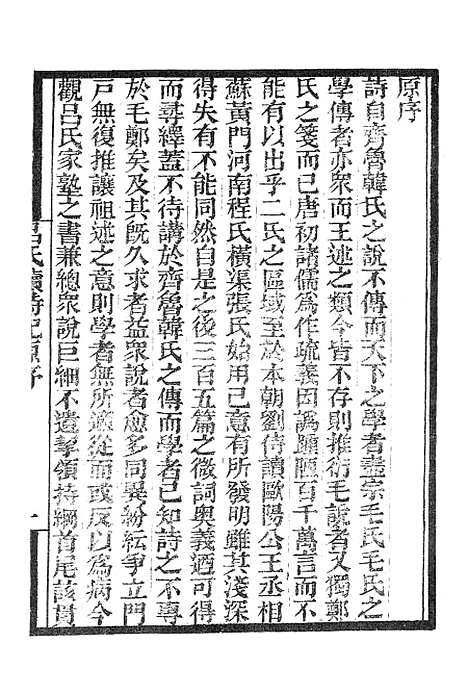 原序
詩自齊魯韓氏之說不傳而天下之學者盡宗毛氏毛氏之
學傳者亦衆而王述之類今皆不存則推衍毛說者又獨鄭
氏之箋而已唐初諸儒爲作疏義因譌踵陋百千萬言而不
能有以出乎二氏之區域至於本朝劉侍讀歐陽公王丞相
蘇黃門河南程氏橫渠張氏始用己意有所發明雖其淺深
得失有不能同然自是之後三百五篇之微詞奧義迺可得
而尋繹蓋不待講於齊魯韓氏之傳而學者已知詩之不專
於毛鄭矣及其既久求者益衆說者愈多同異紛紜爭立門
戸無復推讓祖述之意則學者無所適從而或反以爲病今
觀呂氏家塾之書兼總衆說巨細不遺挈領持綱首尾該貫
呂氏讀詩記原序
一